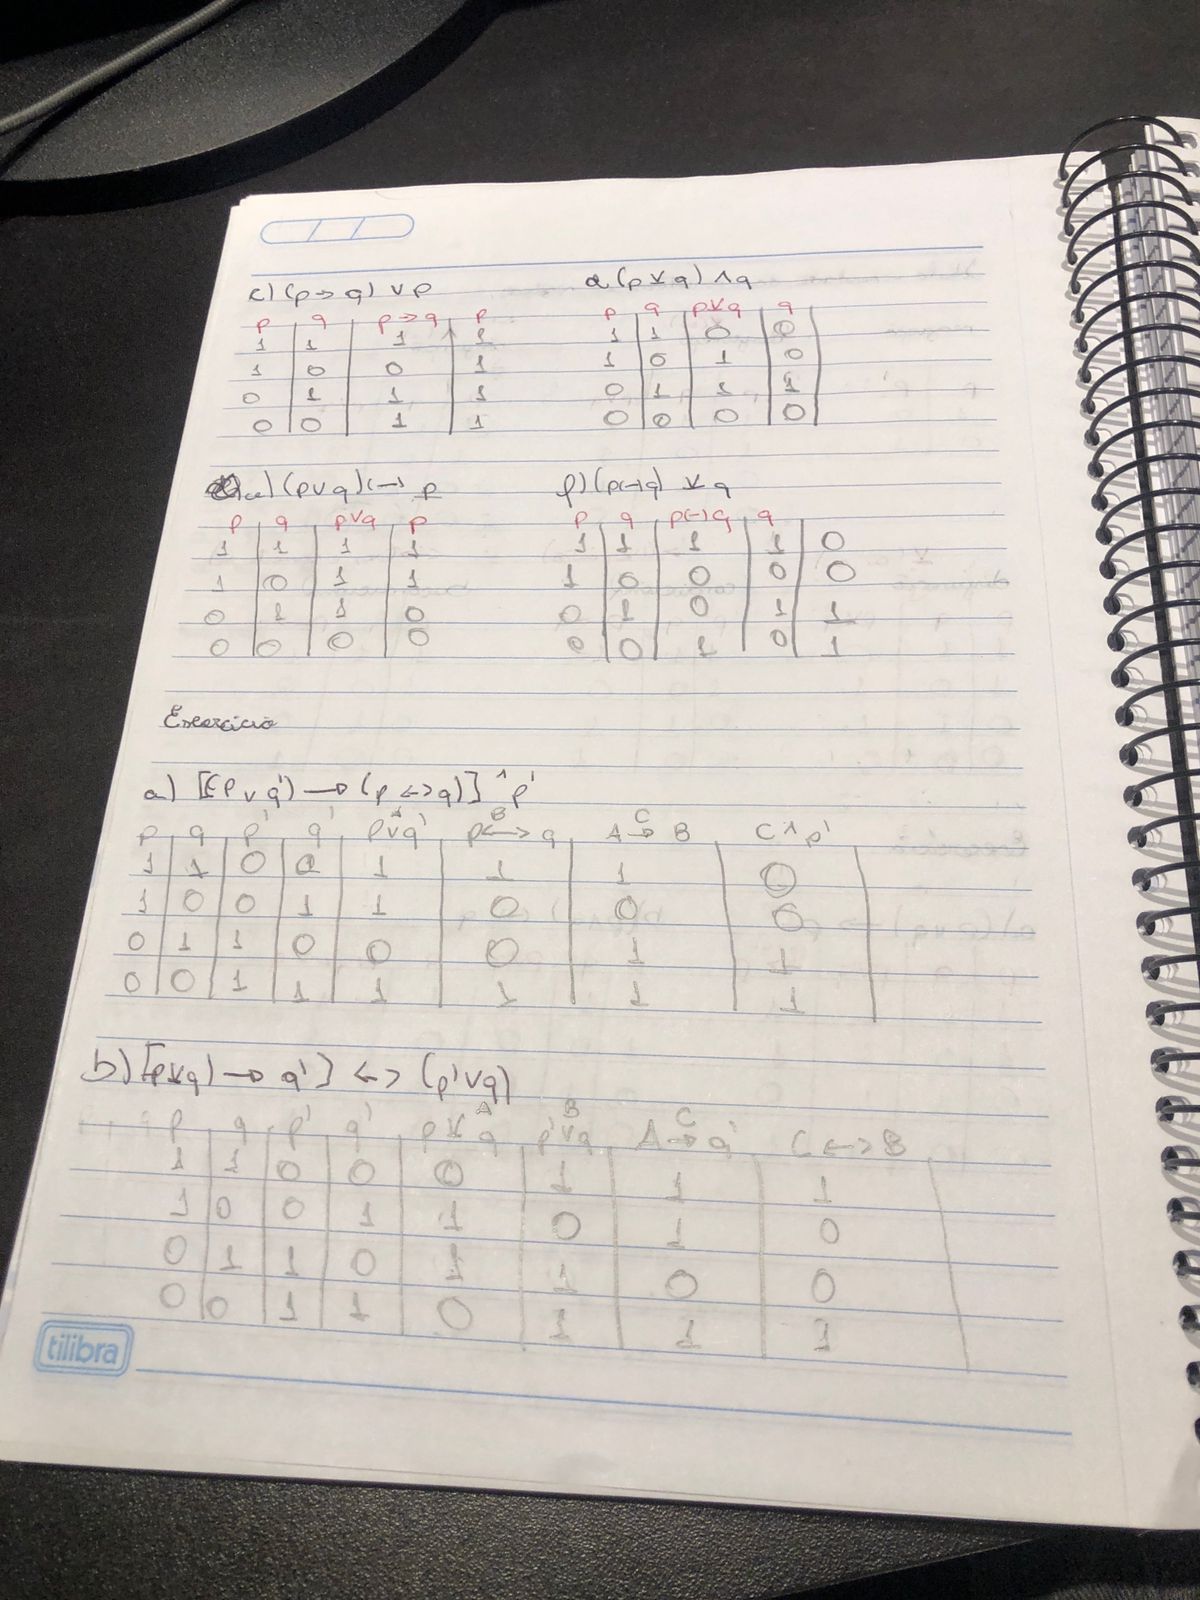 c) (p → q) ∨ p
p q p → q p
1 1 1 1
1 0 0 1
0 1 1 1
0 0 1 1
d (p ⊻ q) ∧ q
p q p ⊻ q q
1 1 0 0
1 0 1 0
0 1 1 1
0 0 0 0
e) (p ∨ q) ↔ p
p q p ∨ q p
1 1 1 1
1 0 1 1
0 1 1 0
0 0 0 0
f) (p ↔ q) ⊻ q
p q p ↔ q q
1 1 1 1 0
1 0 0 0 0
0 1 0 1 1
0 0 1 0 1
Exercício
a) [(p ∨ q') → (p ↔ q)] ^ p'
A B C
p q p' q' p ∨ q' p ↔ q A → B C ^ p'
1 1 0 0 1 1 1 0
1 0 0 1 1 0 0 0
0 1 1 0 0 0 1 1
0 0 1 1 1 1 1 1
b) [p ⊻ q) → q'] ↔ (p' ∨ q)
A B C
p q p' q' p ⊻ q p' ∨ q A → q' C ↔ B
1 1 0 0 0 1 1 1
1 0 0 1 1 0 1 0
0 1 1 0 1 1 0 0
0 0 1 1 0 1 1 1
tilibra